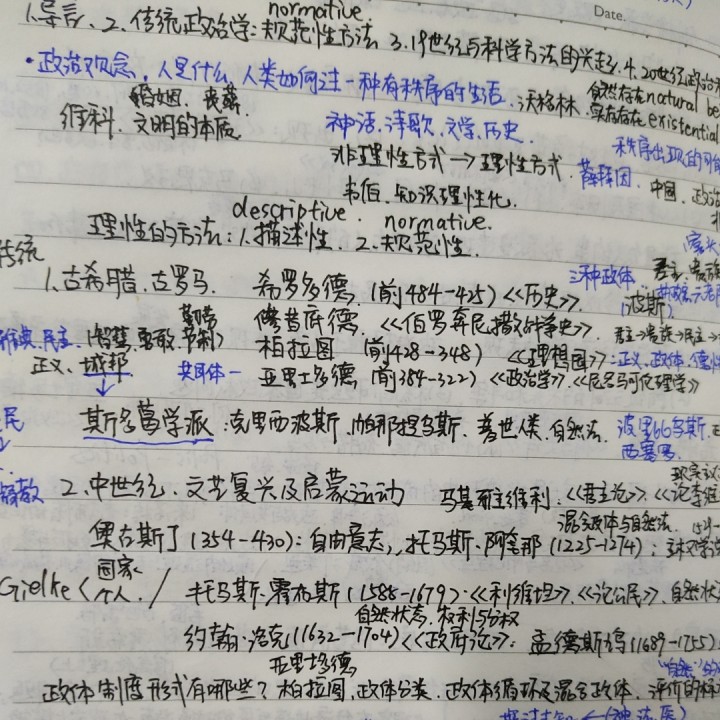 Date.
normative.
1.导言. 2.传统政治学: 规范性方法 3.19世纪与科学方法的兴起. 4.20世纪政治
·政治观念. 人是什么. 人类如何过一种有秩序的生活. 沃格林. 自然存在natural be
婚姻. 丧葬. 实存存在existential
维科. 文明的本质. 神话.诗歌.文学.历史. 秩序出现的可能
非理性方式→理性方式. 中国. 政治
韦伯. 知识理性化.
descriptive. normative.
理性的方法: 1.描述性. 2.规范性.
传统
1.古希腊.古罗马. 希罗多德. (前484-425)《历史》. 三种政体
(波斯)
修昔底德. 《伯罗奔尼撒战争史》. 君主→贵族→民主→
民主. (智慧.勇敢.节制) 柏拉图 (前428-348) 《理想国》: 正义.政体.德性
正义. 城邦 共同体一 亚里士多德. (前384-322)《政治学》.《尼各马可伦理学》
民 斯多葛学派. 克里西波斯.帕那提乌斯. 普世人类.自然法. 波里比乌斯.
西塞罗.
2.中世纪.文艺复兴及启蒙运动 马基雅维利: 《君主论》.《论李维
混合政体与自然法.
奥古斯丁(354-430): 自由意志, 托马斯·阿奎那(1225-1274):
Gielke 国家
个人. / 托马斯·霍布斯(1588-1679)·《利维坦》.《论公民》. 自然状
自然状态. 权利与分权
约翰·洛克(1632-1704)《政府论》: 孟德斯鸠(1689-1755)
亚里士多德 "自然"
政体制度形式有哪些? 柏拉图.政体分类. 政体循环及混合政体. 评价的标